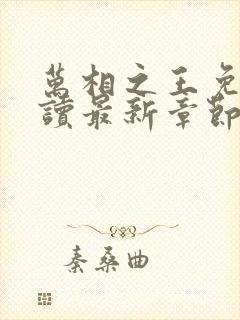 萬相之王免
讀最新章節
秦桑曲